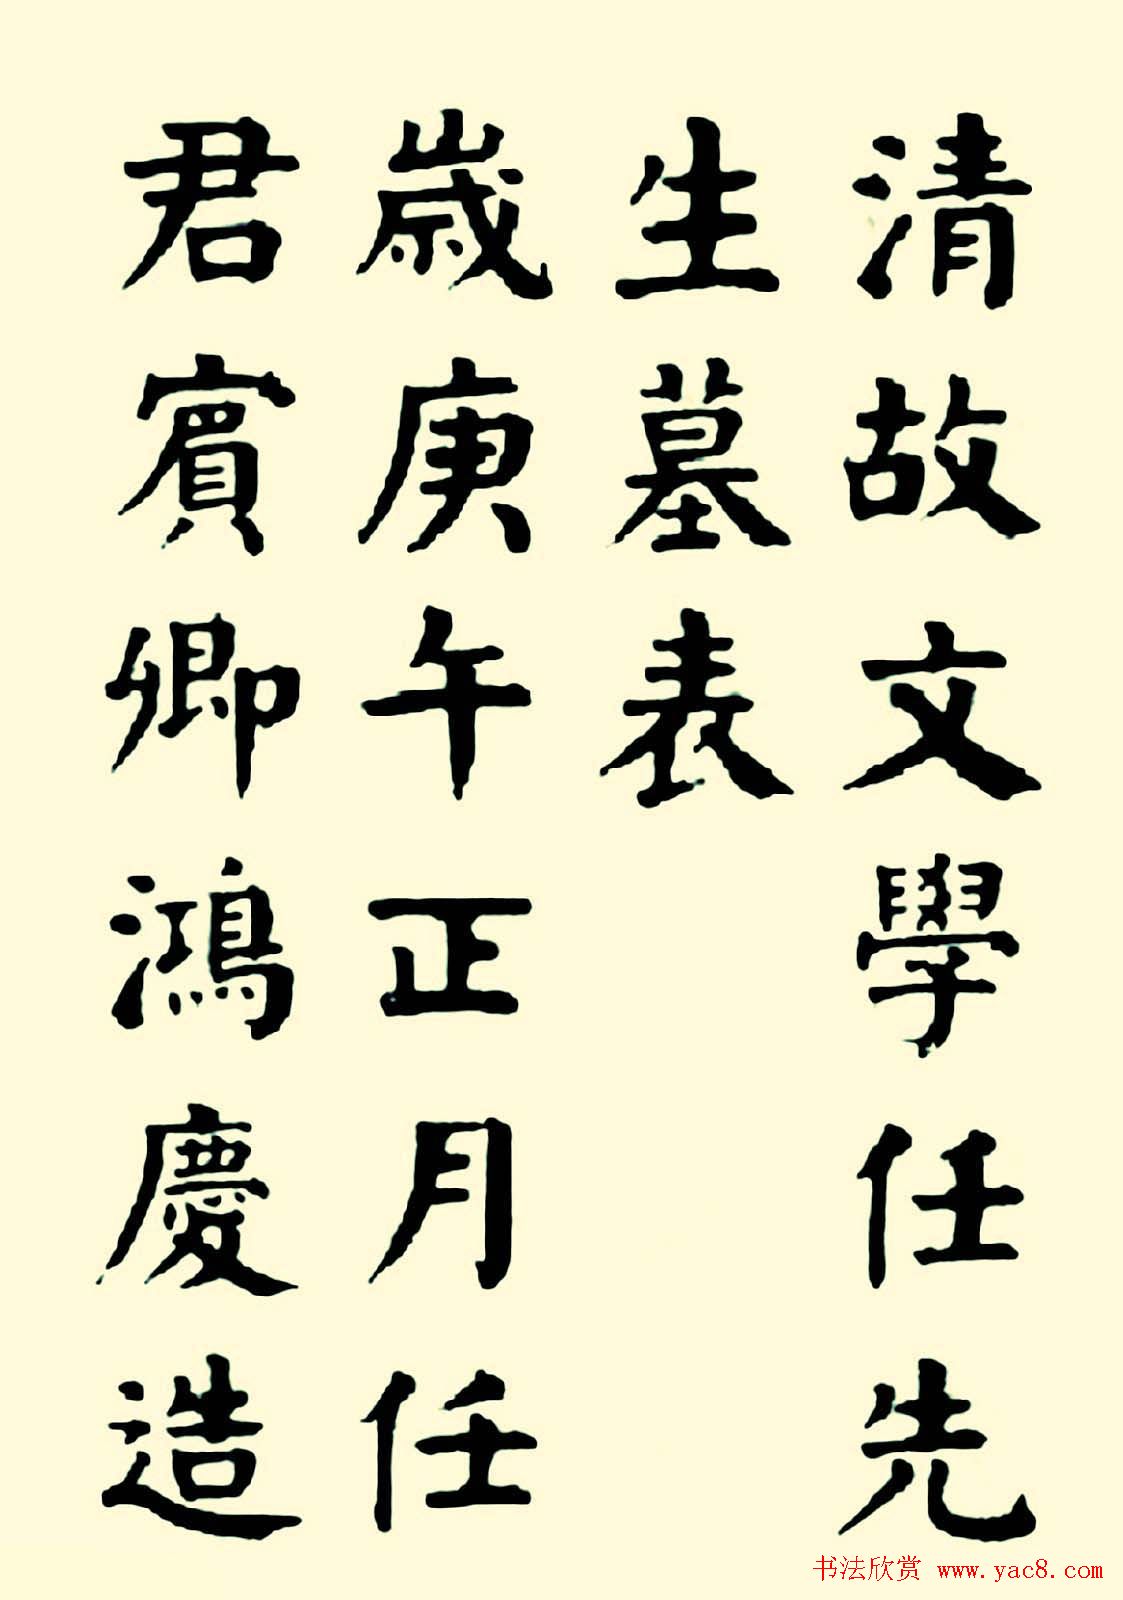 清故文學任先
生墓表
歲庚午正月任
君賓卿鴻慶造
书法欣赏 www.yac8.com